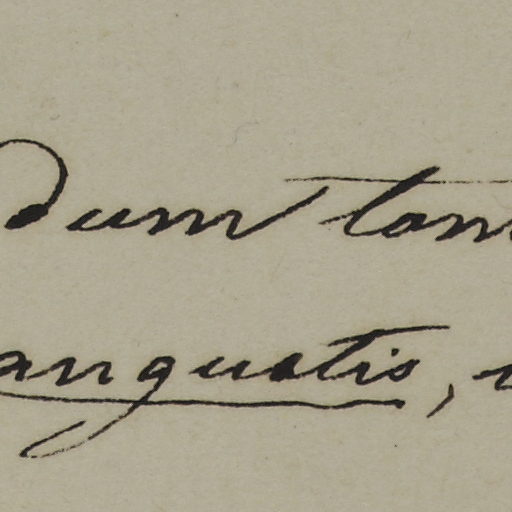 dum tam
angustis,